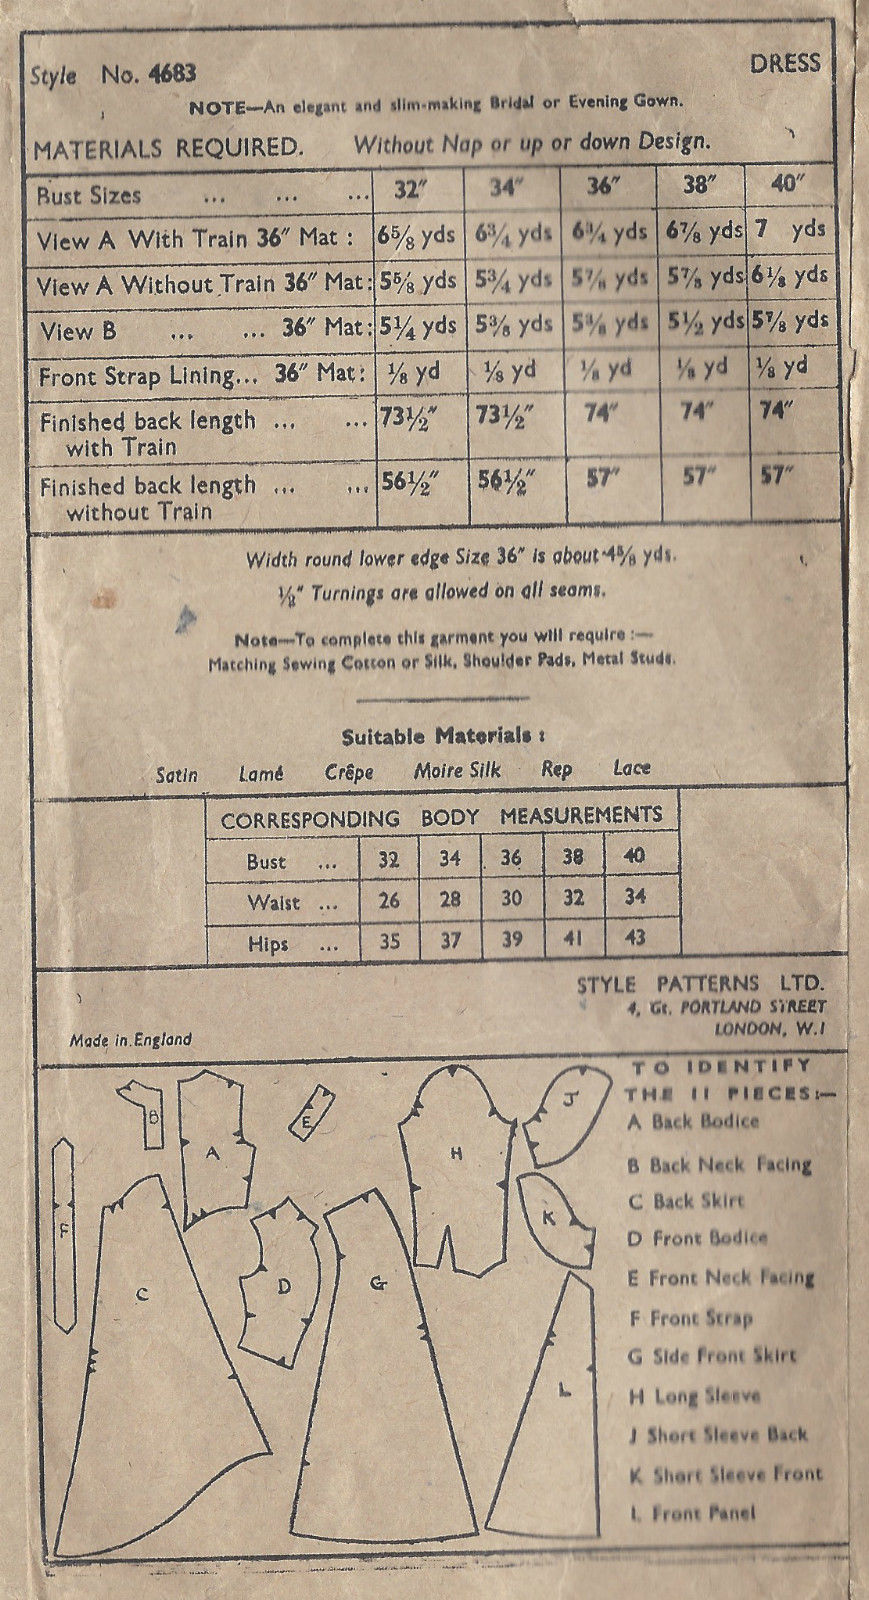 Style No. 4683 DRESS
NOTE—An elegant and slim-making Bridal or Evening Gown.
MATERIALS REQUIRED. Without Nap or up or down Design.
Bust Sizes ... ... ... 32″ 34″ 36″ 38″ 40″
View A With Train 36″ Mat : 6⅝ yds 6¾ yds 6¾ yds 6⅞ yds 7 yds
View A Without Train 36″ Mat: 5⅝ yds 5¾ yds 5⅞ yds 5⅞ yds 6⅛ yds
View B ... ... 36″ Mat: 5¼ yds 5⅜ yds 5⅜ yds 5½ yds 5⅞ yds
Front Strap Lining... 36″ Mat: ⅛ yd ⅛ yd ⅛ yd ⅛ yd ⅛ yd
Finished back length ... ... 73½″ 73½″ 74″ 74″ 74″
with Train
Finished back length ... ... 56½″ 56½″ 57″ 57″ 57″
without Train
Width round lower edge Size 36″ is about 4⅝ yds.
½″ Turnings are allowed on all seams.
Note—To complete this garment you will require :—
Matching Sewing Cotton or Silk, Shoulder Pads, Metal Studs.
Suitable Materials :
Satin Lamé Crêpe Moire Silk Rep Lace
CORRESPONDING BODY MEASUREMENTS
Bust ... 32 34 36 38 40
Waist ... 26 28 30 32 34
Hips ... 35 37 39 41 43
STYLE PATTERNS LTD.
4, Gt. PORTLAND STREET
LONDON, W.I
Made in England
TO IDENTIFY
THE 11 PIECES:—
A Back Bodice
B Back Neck Facing
C Back Skirt
D Front Bodice
E Front Neck Facing
F Front Strap
G Side Front Skirt
H Long Sleeve
J Short Sleeve Back
K Short Sleeve Front
L Front Panel
B
A
E
H
J
F
C
D
G
K
L